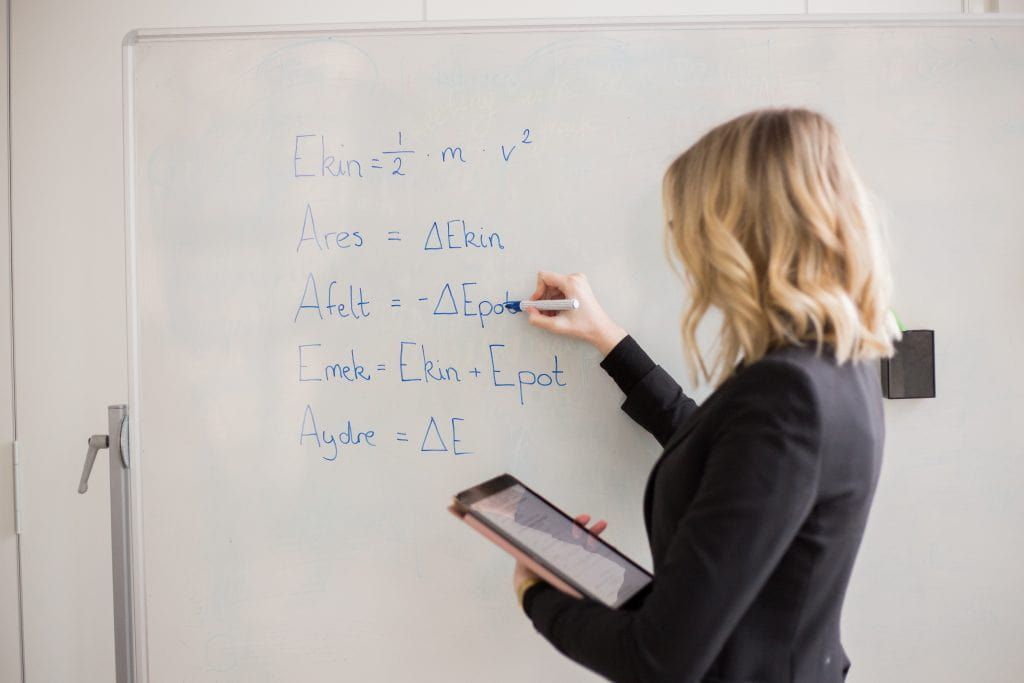 Ekin = 1/2 · m · v²
Ares = ΔEkin
Afelt = -ΔEpot
Emek = Ekin + Epot
Aydre = ΔE